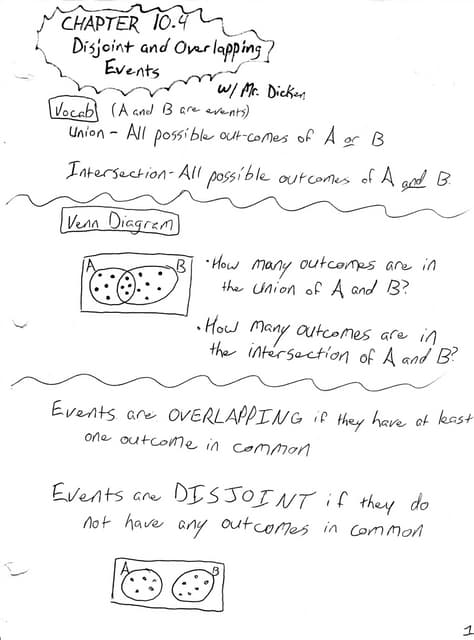 CHAPTER 10.4
Disjoint and Overlapping
Events
w/ Mr. Dicken
Vocab (A and B are events)
Union - All possible out-comes of A or B
Intersection - All possible outcomes of A and B.
Venn Diagram
A B
• How many outcomes are in
the union of A and B?
• How many outcomes are in
the intersection of A and B?
Events are OVERLAPPING if they have at least
one outcome in common
Events are DISJOINT if they do
not have any outcomes in common
A B
1